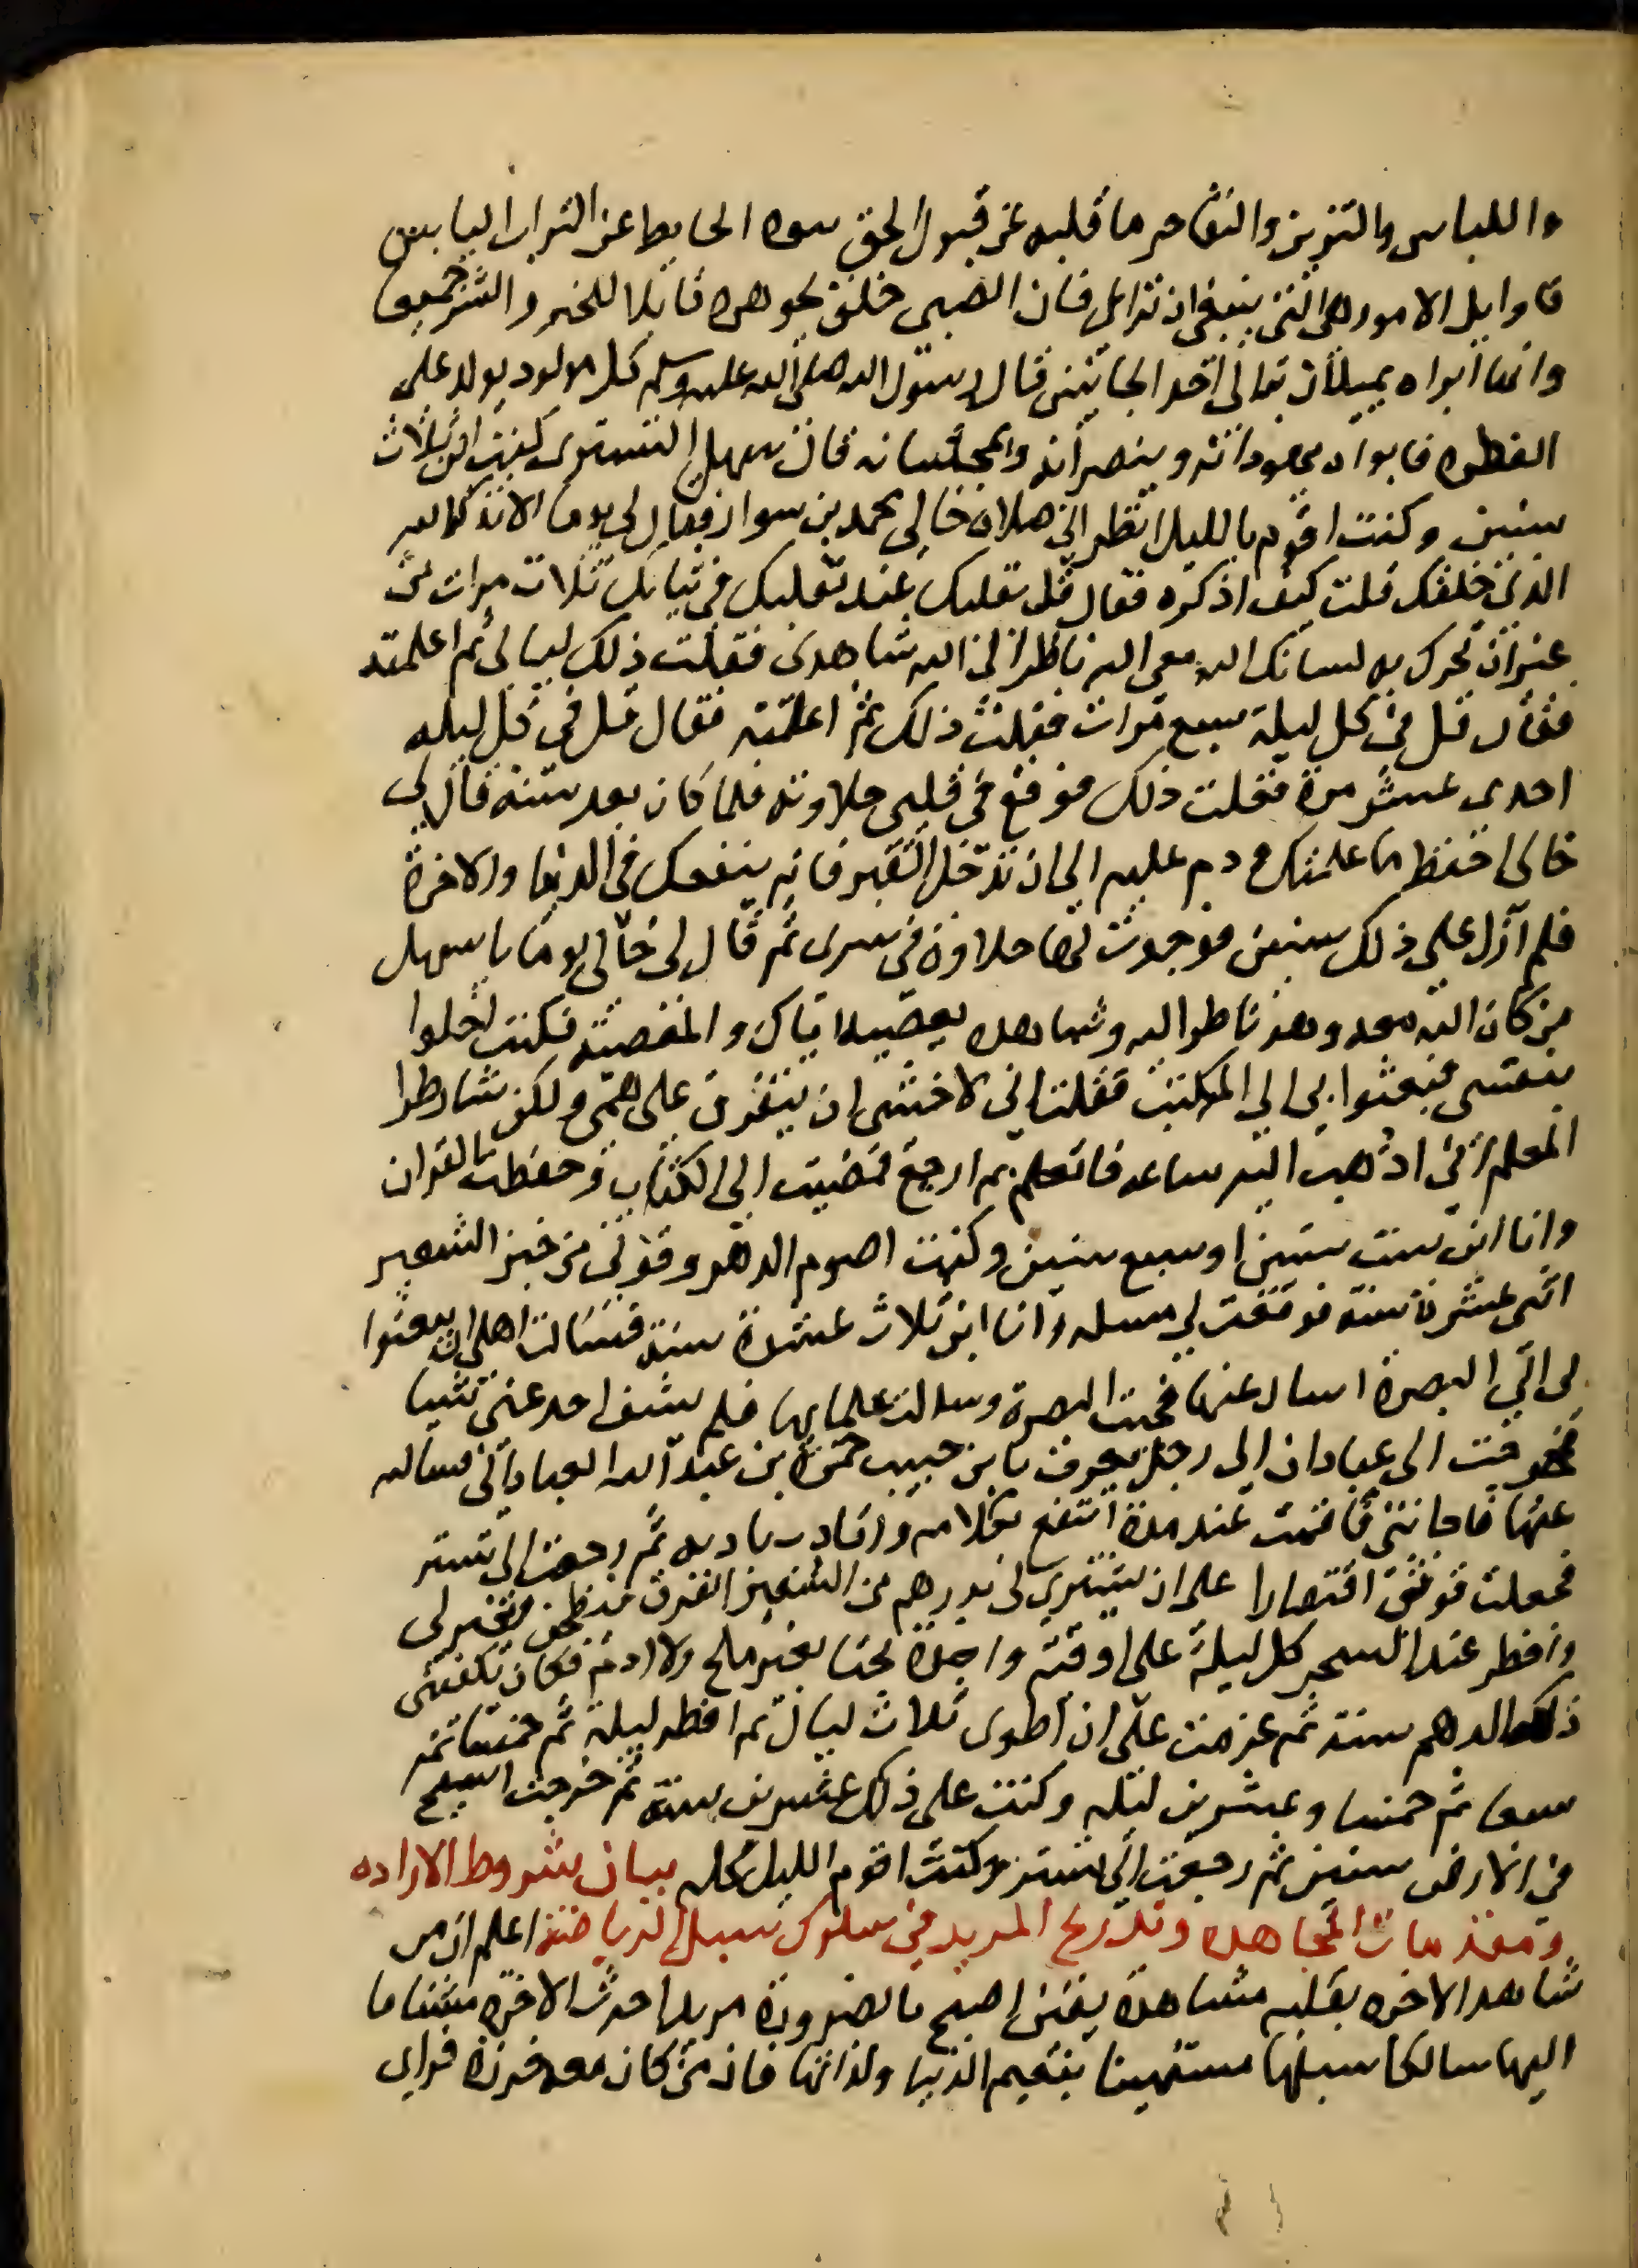 واللباس والتزين والتفاخر ما قلبه عن قبول الحق نبوة الحايط عن التراب اليابس
فاوايل الامور هى التى ينبغى ان تراعى فان الصبى خلق بجوهره قابلا للخير والشر جميعا
وانما ابواه يميلان به الى احد الجانبين قال رسول الله صلى الله عليه وسلم كل مولود يولد على
الفطرة فابواه يهودانه وينصرانه ويمجسانه قال سهل التسترى كنت ابن ثلاث
سنين وكنت اقوم بالليل انظر الى صلاة خالى محمد بن سوار فقال لى يوما الا تذكر الله
الذى خلقك قلت كيف اذكره فقال قل بقلبك عند تقلبك فى ثيابك ثلاث مرات من
غير ان تحرك به لسانك الله معى الله ناظر الى الله شاهدى فقلت ذلك ليالى ثم اعلمته
فقال قل فى كل ليلة سبع مرات فقلت ذلك ثم اعلمته فقال قل فى كل ليله
احدى عشر مرة فقلت ذلك فوقع فى قلبى حلاوته فلما كان بعد سنة قال لى
خالى احفظ ما علمتك ودم عليه الى ان تدخل القبر فانه ينفعك فى الدنيا والاخرة
فلم ازل على ذلك سنين فوجدت لها حلاوة فى سرى ثم قال لى خالى يوما يا سهل
من كان الله معه وهو ناظر اليه وشاهده يعصيه اياك والمعصية فكنت اخلوا
بنفسى فبعثوا بى الى المكتب فقلت انى لاخشى ان يتفرق على همى ولكن شارطوا
المعلم انى اذهب اليه ساعه فاتعلم ثم ارجع فمضيت الى الكتاب وحفظت القران
وانا ابن ست سنين او سبع سنين وكنت اصوم الدهر وقوتى من خبز الشعير
اثنى عشرة سنة فوقعت لى مسله وانا ابن ثلاث عشرة سنة فسالت اهلى ان يبعثوا
بى الى البصرة اسال عنها فجيت البصرة وسالت علمايها فلم يشف احد عنى شيا
فخرجت الى عبادان الى رجل يعرف بابن حبيب حمزة بن عبد الله العبادانى فسالته
عنها فاجابنى فاقمت عنده مدة انتفع بكلامه واتادب بادبه ثم رجعت الى تستر
فجعلت قوتى اقتصارا على ان يشترى لى بدرهم من الشعير الفرق فيطحن ويخبز لى
وافطر عند السحر كل ليلة على اوقية واحدة بحتا بغير ملح ولا ادم فكان يكفينى
ذلك الدرهم سنة ثم عزمت على ان اطوى ثلاث ليال ثم افطر ليلة ثم خمسا ثم
سبعا ثم خمسا وعشرين ليلة وكنت على ذلك عشرين سنة ثم خرجت اسيح
فى الارض سنين ثم رجعت الى تستر وكنت اقوم الليل كله بيان شروط الاراده
ومقدمات المجاهده وتدريج المريد فى سلوك سبيل الرياضة اعلم ان من
شاهد الاخره بقلبه مشاهدة يقين اصبح بالضرورة مريدا حرث الاخرة مشتاقا
اليها سالكا سبلها مستهينا بنعيم الدنيا ولذاتها فان من كان معه خرزة فراى